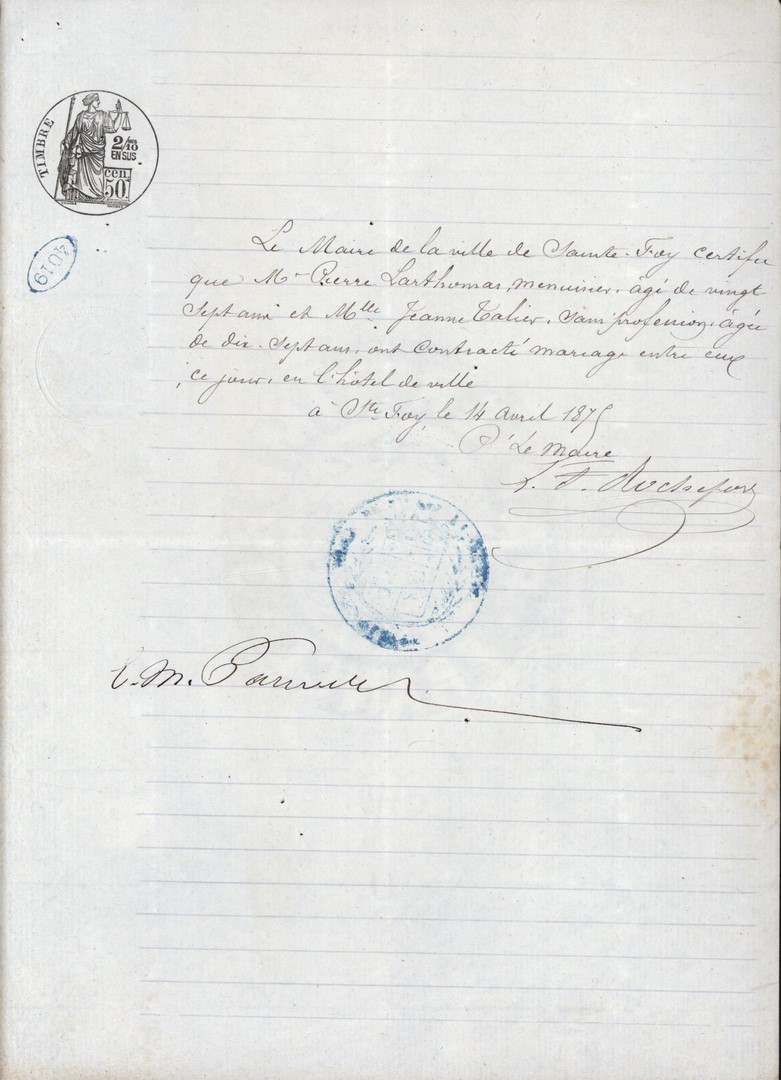 TIMBRE
2/10 EN SUS
cen. 50.
4U19
Le Maire de la ville de Sainte-Foy certifie
que Mr Pierre Larthomas, menuisier, âgé de vingt
sept ans et Mlle Jeanne Talier, sans profession, âgée
de dix-sept ans, ont contracté mariage entre eux
ce jour, en l'hôtel de ville
à Ste Foy, le 14 avril 1875
Pr Le Maire